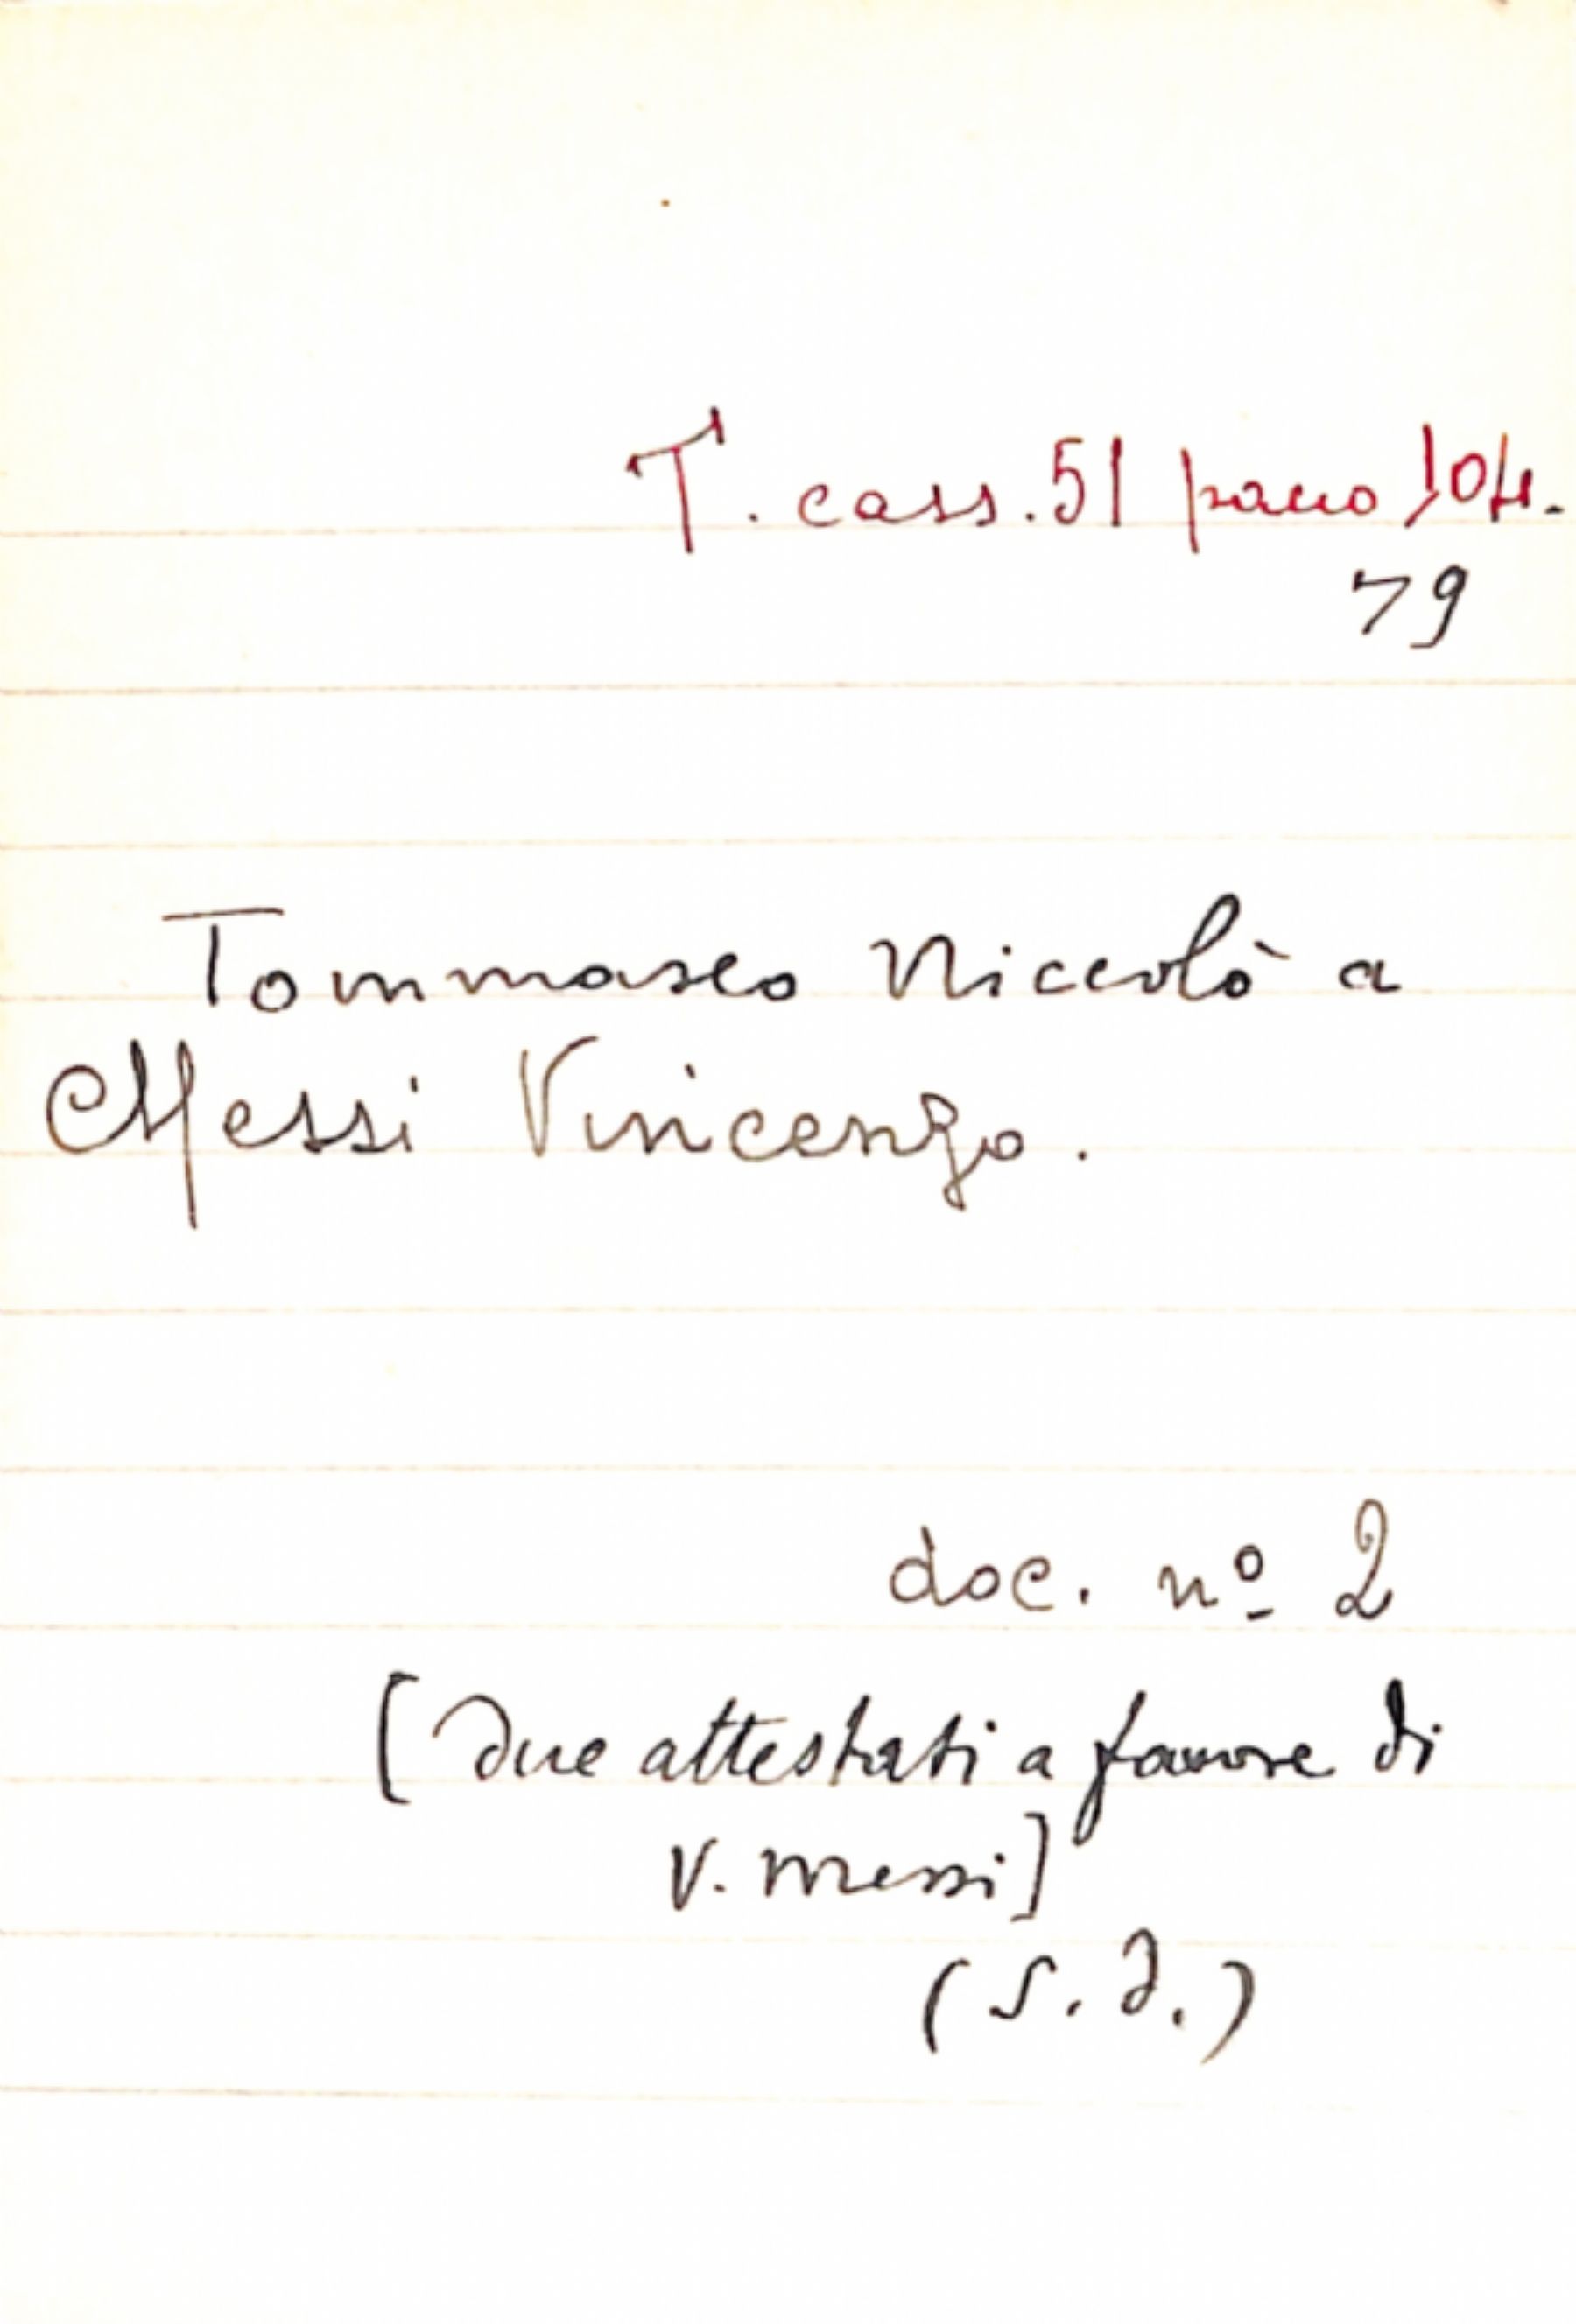 T. cass. 51 pacco 104.
79
Tommaseo Niccolò a
Messi Vincenzo.
doc. nº 2
[due attestati a favore di
V. Messi]
(s. d.)